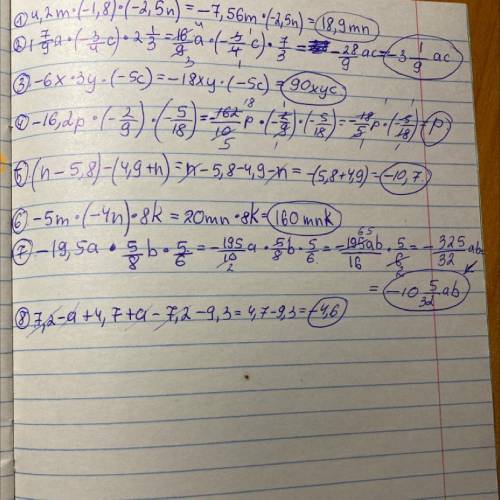 ① 4,2m·(-1,8)·(-2,5n)=-7,56m·(-2,5n)=18,9mn
② 1 7/9 a·(-3/4 c)·2 1/3=16/9 a·(-3/4 c)·7/3=-28/9 ac=-3 1/9 ac
③ -6x·3y·(-5c)=-18xy·(-5c)=90xyc
④ -16,2p·(-2/9)·(-5/18)=-162/10 p·(-2/9)·(-5/18)=-18/5 p·(-5/18)=p
⑤ (n-5,8)-(4,9+n)=n-5,8-4,9-n=-(5,8+4,9)=-10,7
⑥ -5m·(-4n)·8k=20mn·8k=160mnk
⑦ -19,5a·5/8 b·5/6=-195/10 a·5/8 b·5/6=-195ab/16·5/6=-325/32 ab
=-10 5/32 ab
⑧ 7,2-a+4,7+a-7,2-9,3=4,7-9,3=-4,6